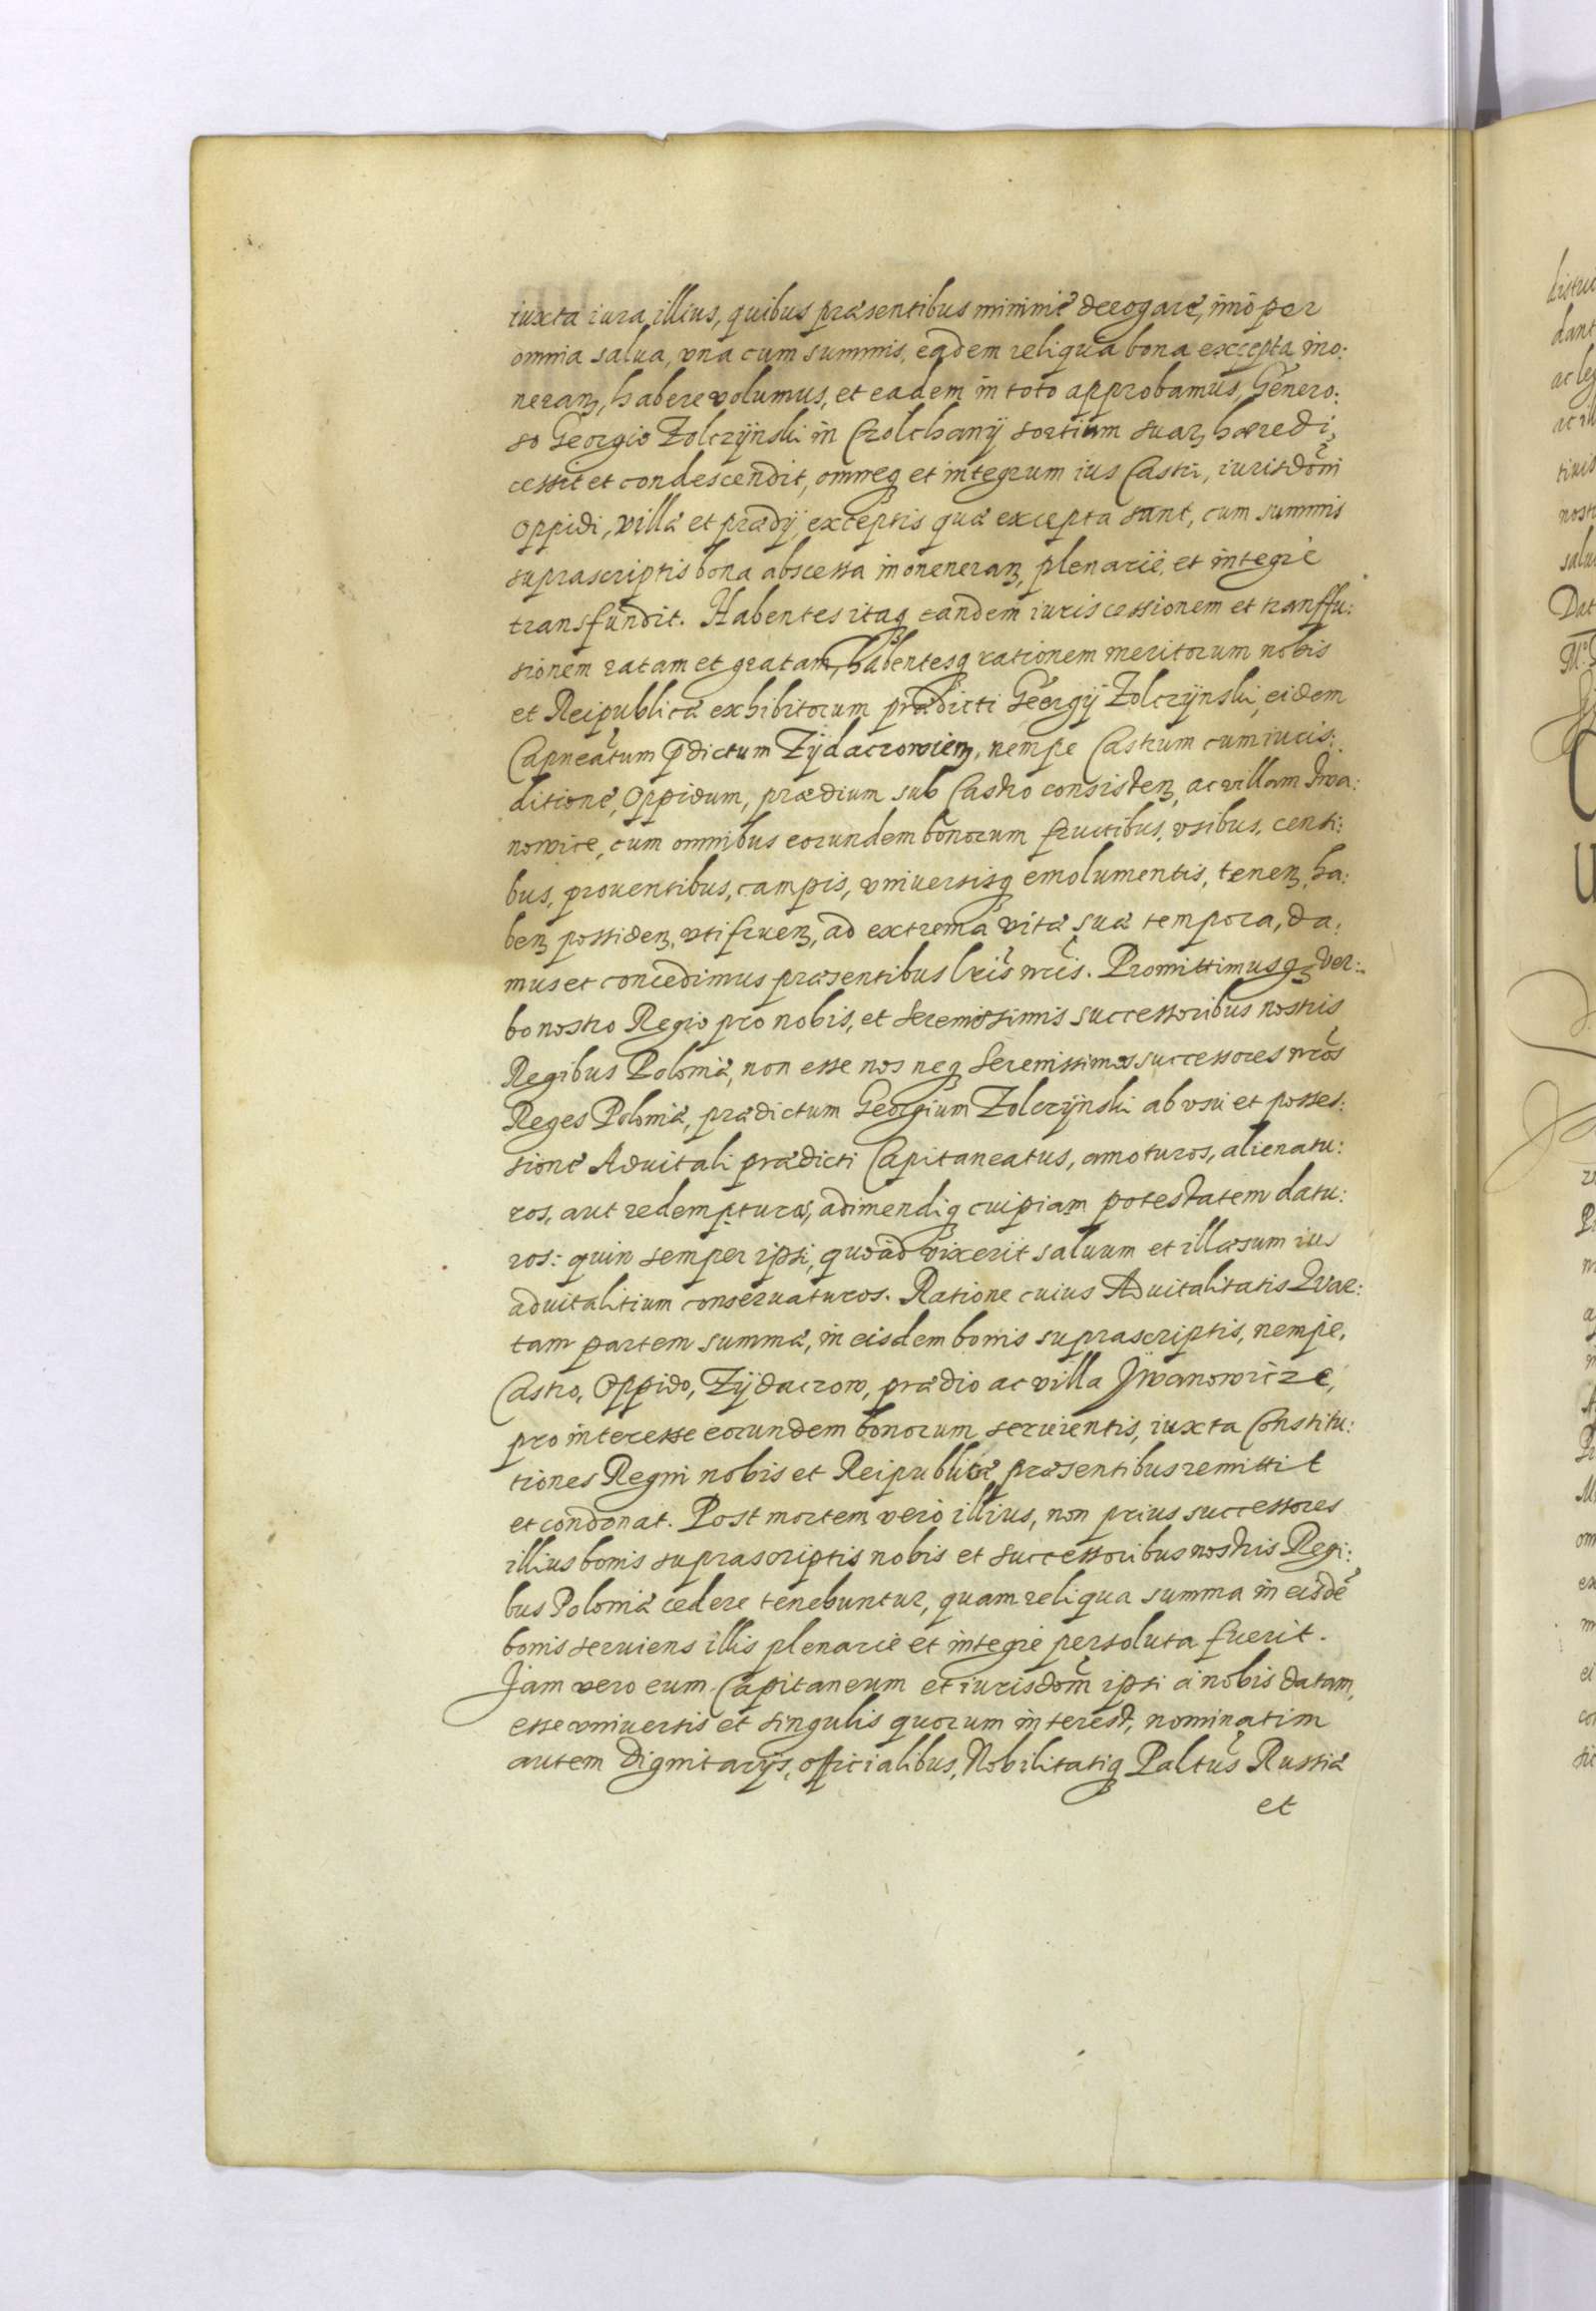 iuxta iura illius, quibus præsentibus minimè derogare, imò per
omnia salua, vna cum summis, eadem reliqua bona excepta ino:
neranꝫ, habere volumus, et eadem in toto approbamus, Genero:
so Georgio Zolczÿnski in Czolchanÿ sortium suarꝫ hæredi,
cessit et condescendit, omneqꝫ et integrum ius Castri, iurisdõni
Oppidi, villæ et prædÿ, exceptis quæ excepta sunt, cum summis
suprascriptis bona abscessa inoneneranꝫ, plenariè et integrè
transfundit. Habentes itaqꝫ eandem iuris cessionem et transffu:
sionem ratam et gratam, habentesqꝫ rationem meritorum nobis
et Reipublicæ exhibitorum prædicti Georgÿ Zolczÿnski, eidem
Capneatum p̃dictum Zÿdaczowienꝫ, nempe Castrum cum iuris:
ditione, Oppidum, prædium sub Castro consistenꝫ, ac villam Iwa:
nowice, cum omnibus eorundem bonorum fructibus, vsibus, censi:
bus, prouentibus, campis, vniuersisqꝫ emolumentis, tenenꝫ, ha:
benꝫ possidenꝫ, vtifruenꝫ, ad extrema vitæ suæ tempora, da:
mus et concedimus præsentibus lr̃is nr̃is. Promittimusqꝫ ver:
bo nostro Regio pro nobis, et Serenissimis successoribus nostris
Regibus Poloniæ, non esse nos neqꝫ Serenissimos successores nr̃os
Reges Poloniæ, prædictum Georgium Zolczÿnski ab vsu et posses:
sione Aduitali prædicti Capitaneatus, amoturos, alienatu:
ros, aut redempturos, adimendiqꝫ cuipiam potestatem datu:
ros: quin semper ipsi, quoad vixerit saluum et illæsum ius
aduitalitium conseruaturos. Ratione cuius Aduitalitatis Quar:
tam partem summæ, in eisdem bonis suprascriptis, nempe,
Castro, Oppido, Zÿdaczow, prædio ac villa Jwanowicze,
pro interesse eorundem bonorum seruientis, iuxta Constitu:
tiones Regni nobis et Reipublicæ præsentibus remittit
et condonat. Post mortem verò illius, non prius successores
illius bonis suprascriptis nobis et successoribus nostris Regi:
bus Poloniæ cedere tenebuntur, quam reliqua summa in eisdẽ
bonis seruiens illis plenariè et integrè persoluta fuerit.
Jam vero eum Capitaneum et iurisdom̃ ipsi à nobis datam,
esse vniuersis et singulis quorum interest, nominatim
autem Dignitarÿs, officialibus, Nobilitatiqꝫ Paltus̃ Russiæ
et